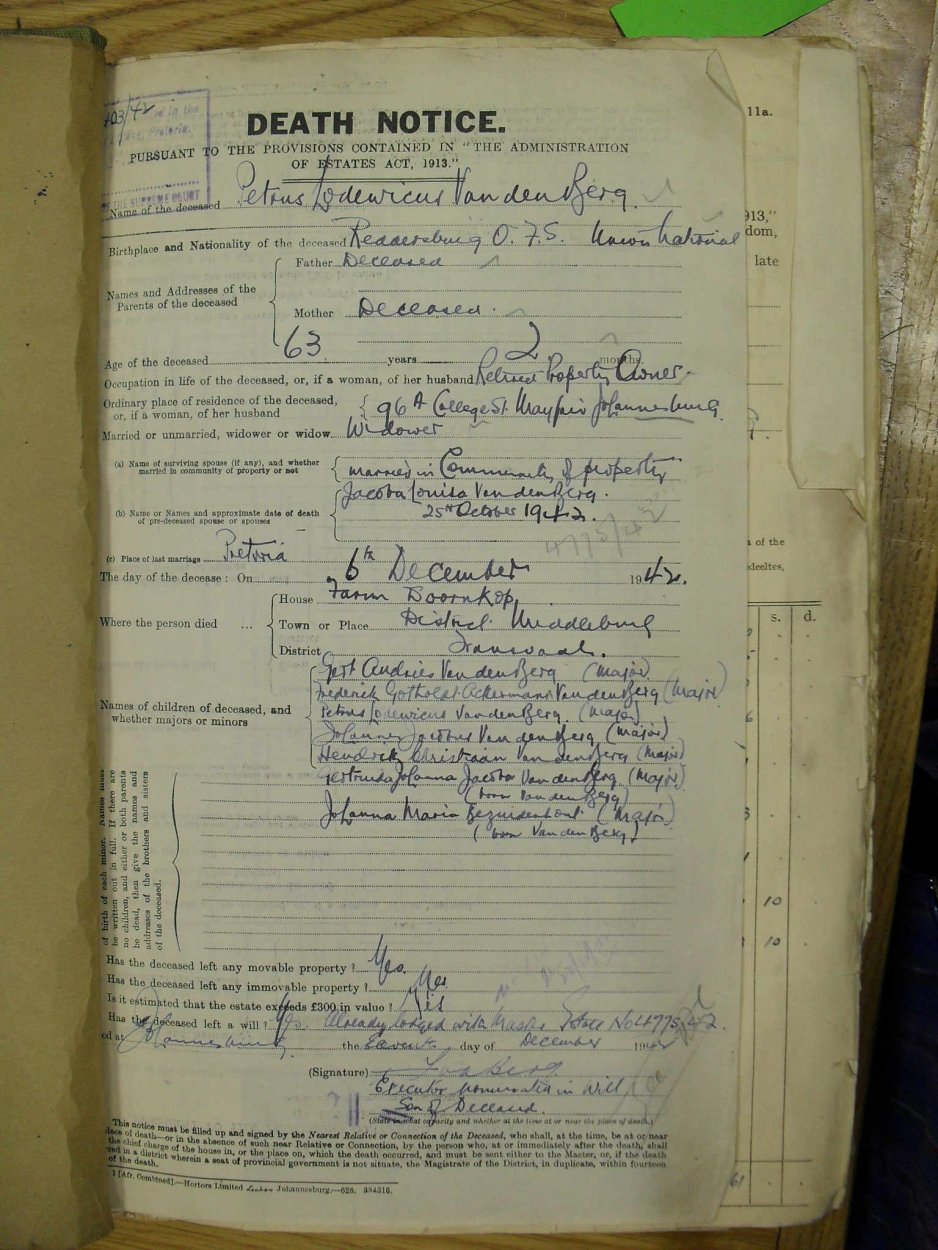 403/42
DEATH NOTICE.
PURSUANT TO THE PROVISIONS CONTAINED IN "THE ADMINISTRATION
OF ESTATES ACT, 1913."
THE SUPREME COURT
Name of the deceased Petrus Lodewicus Van den Berg.
Birthplace and Nationality of the deceased Reddersburg O.F.S. Union National
Names and Addresses of the Parents of the deceased
Father Deceased
Mother Deceased.
Age of the deceased 63 years 2 months.
Occupation in life of the deceased, or, if a woman, of her husband Retired Property Owner.
Ordinary place of residence of the deceased, or, if a woman, of her husband 96A College St. Mayfair Johannesburg.
Married or unmarried, widower or widow Widower
(a) Name of surviving spouse (if any), and whether married in community of property or not married in Community of property
(b) Name or Names and approximate date of death of pre-deceased spouse or spouses Jacoba Louisa Van den Berg.
25th October 1942.
4775/42
(c) Place of last marriage Pretoria
The day of the decease: On 6th December 1942.
Where the person died ...
House Farm Doornkop,
Town or Place District Middelburg
District Transvaal.
Names of children of deceased, and whether majors or minors
Gert Andries Van den Berg (Major)
Frederick Gotholdt Ackermann Van den Berg (Major)
Petrus Lodewicus Van den Berg. (Major)
Johannes Jacobus Van den Berg (Major)
Hendrik Christiaan Van den Berg (Major)
Gertruida Johanna Jacoba Van den Berg. (Major)
(born Van den Berg)
Johanna Maria Bezuidenhout (Major)
(born Van den Berg)
of birth of each minor. Names must
be written out in full. If there are
no children, and either or both parents
be dead, then give the names and
addresses of the brothers and sisters
of the deceased.
Has the deceased left any movable property? Yes.
Has the deceased left any immovable property? Yes
Is it estimated that the estate exceeds £300 in value? Yes
Has the deceased left a will? Yes. Already lodged with Master Estate No 4775/42.
ed at Johannesburg the day of December 1942
(Signature)
Executor nominated in will,
Son of Deceased.
(State in what capacity and whether at the time at or near the place of death.)
This notice must be filled up and signed by the Nearest Relative or Connection of the Deceased, who shall, at the time, be at or near
place of death—or in the absence of such near Relative or Connection, by the person who, at or immediately after the death, shall
the chief charge of the house in, or the place on, which the death occurred, and must be sent either to the Master, or, if the death
red in a district wherein a seat of provincial government is not situate, the Magistrate of the District, in duplicate, within fourteen
of the death.
1 [Afr. Combined].—Hortors Limited Johannesburg.—628. 334310.
11a.
913,"
dom,
late
of the
deeltes,
s. d.
10
10
61